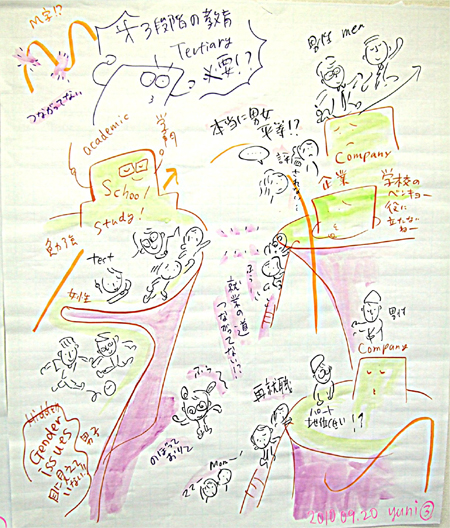 M字!?
つながってない
第3段階の教育
Tertiary
必要!?
男性 men
academic
学力
School
Study!
本当に男女
平等!?
評価されない…
Company
企業
学校の
ベンキョー
役に
立たない
ねー
勉強
text
女性
就業の道
つながってない!?
男性
Company
再就職
パート
地位低い!?
Gender
Issues
目に見えて
いない!!
男子
のぼって
おりて
Mom〜
2010.09.20 yuni ③